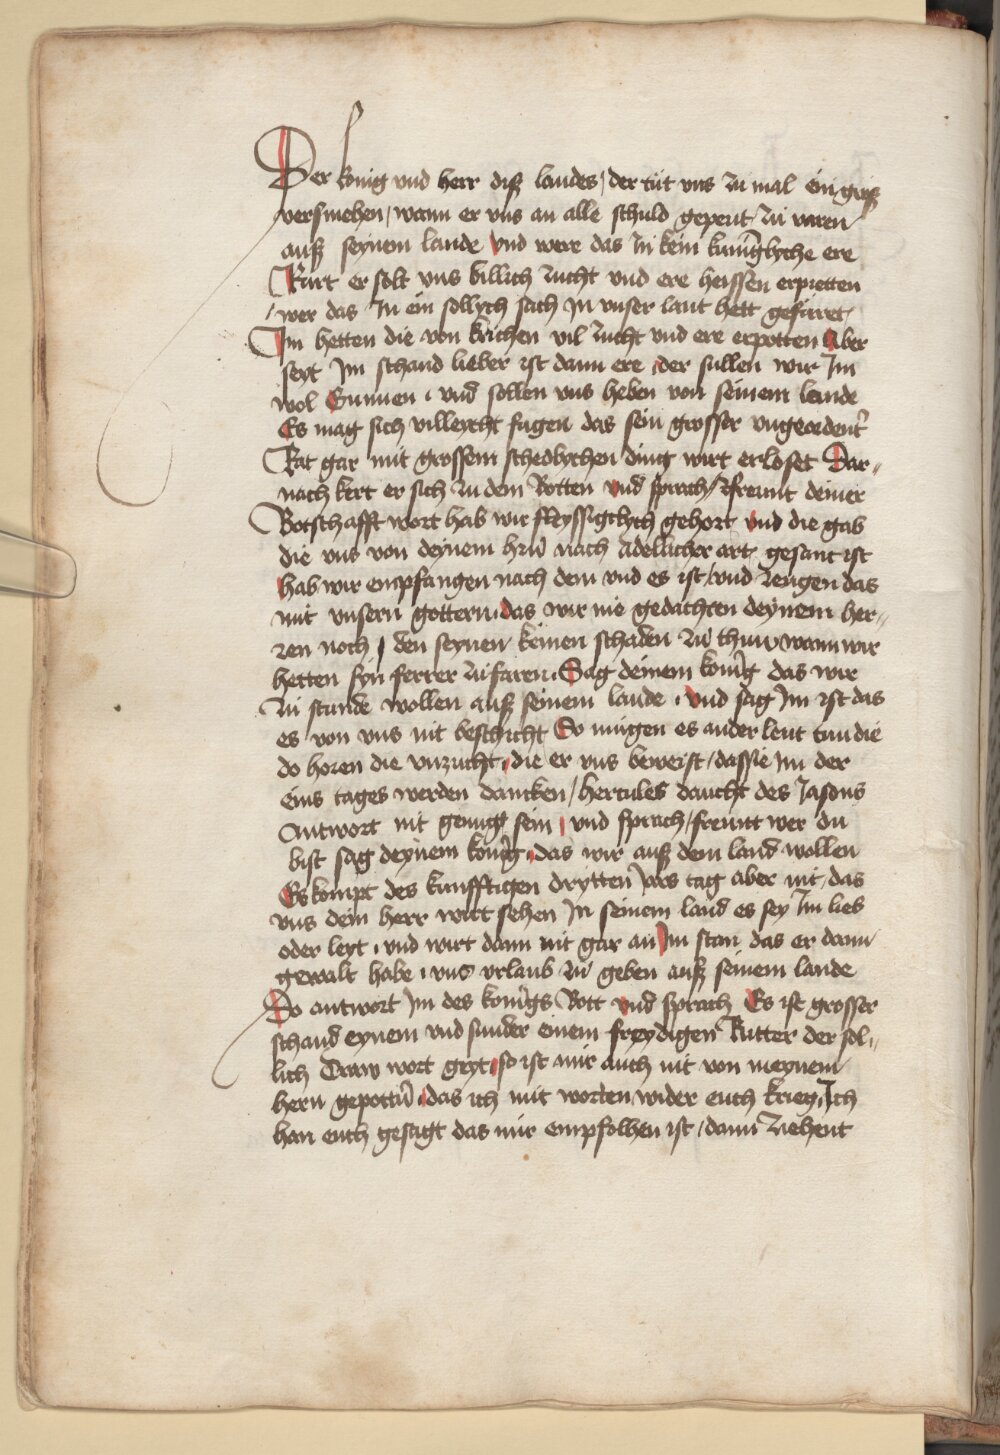 Der konig vnd herr diß landes / der tüt vns zu mal ein groß
versmehen / wann er vns an alle schuld gepeut zu varen
auß seynem lande vnd were das In kein kuniglyche ere
Rürt er solt vns billich zucht vnd ere heissen erpietten
wer das In ein sollych sach In vnser lant hett gefüret
Im hetten die von krichen vil zucht vnd ere erpotten Aber
seyt Im schand lieber ist dann ere der sullen wir Im
wol Gunnen vnd sollen vns heben von seinem lande
Es mag sich villeycht fugen das sein grosser vngeordent
Rat gar mit grossem schedlychen ding wirt erloset Dar„
nach kert er sich zu dem Botten vnd sprach / freunt deiner
Botschafft wort hab wir fleyssigklych gehort vnd die gab
die vns von deynem hrn nach adellicher art gesant ist
hab wir empfangen nach dem vnd es ist / vnd zeugen das
mit vnsern gottern das wir nie gedachten deynem her„
ren noch den seynen keinen schaden zu thun wann wir
hetten syn ferrer zu faren Sag deinem konig das wir
zu stunde wollen auß seinem lande vnd sag Im ist das
es von vns nit beschicht So mugen es ander leut tun die
do horen die vnzucht die er vns beweist / das sie Im der
eins tages werden dancken / hercules daucht des Jasons
Antwort nit genugk sein vnd sprach / freunt wer du
bist sag deynem konig das wir auß dem land wollen
Es kompt des kunfftigen drytten Jars tag aber nit / das
vns dein herr wirt sehen In seinem land es sey Im lieb
oder leyt vnd wirt dann nit gar an Im stan das er dann
gewalt habe vns vrlaub zu geben auß seinem lande
Do antwort Im des konigs Bott vnd sprach Es ist grosser
schand eynem vnd sunder einem freydigen Ritter der sol„
lich Draw wort geyt so ist mir auch nit von meynem
hern gepottn das ich mit worten wider euch krieg Ich
han euch gesagt das mir empfolhen ist / dann ziehent